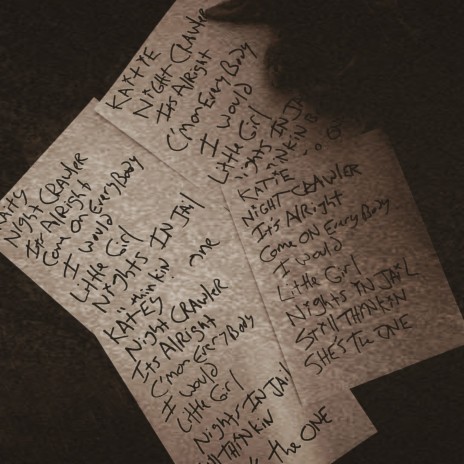 KAYTYE
NIGHT CRAWLER
ITS ALRIGHT
C'mon Every Body
I would
Little Girl
IGHTS IN JAI
KATIE
NIGHT CRAWLER
It's AlRight
Come ON Every Body
I would
Little Girl
Nights IN JAIL
STill THINKIN
SHE'S The ONE
Night CRAWler
Its Alright
Come on Every Body
I would
Little Girl
Nights IN Jail
thinkin
one
KATES
Night CRAWler
Its Alright
C'mon Every Body
I would
Little Girl
Nights IN Jail
THINKIN
the ONE